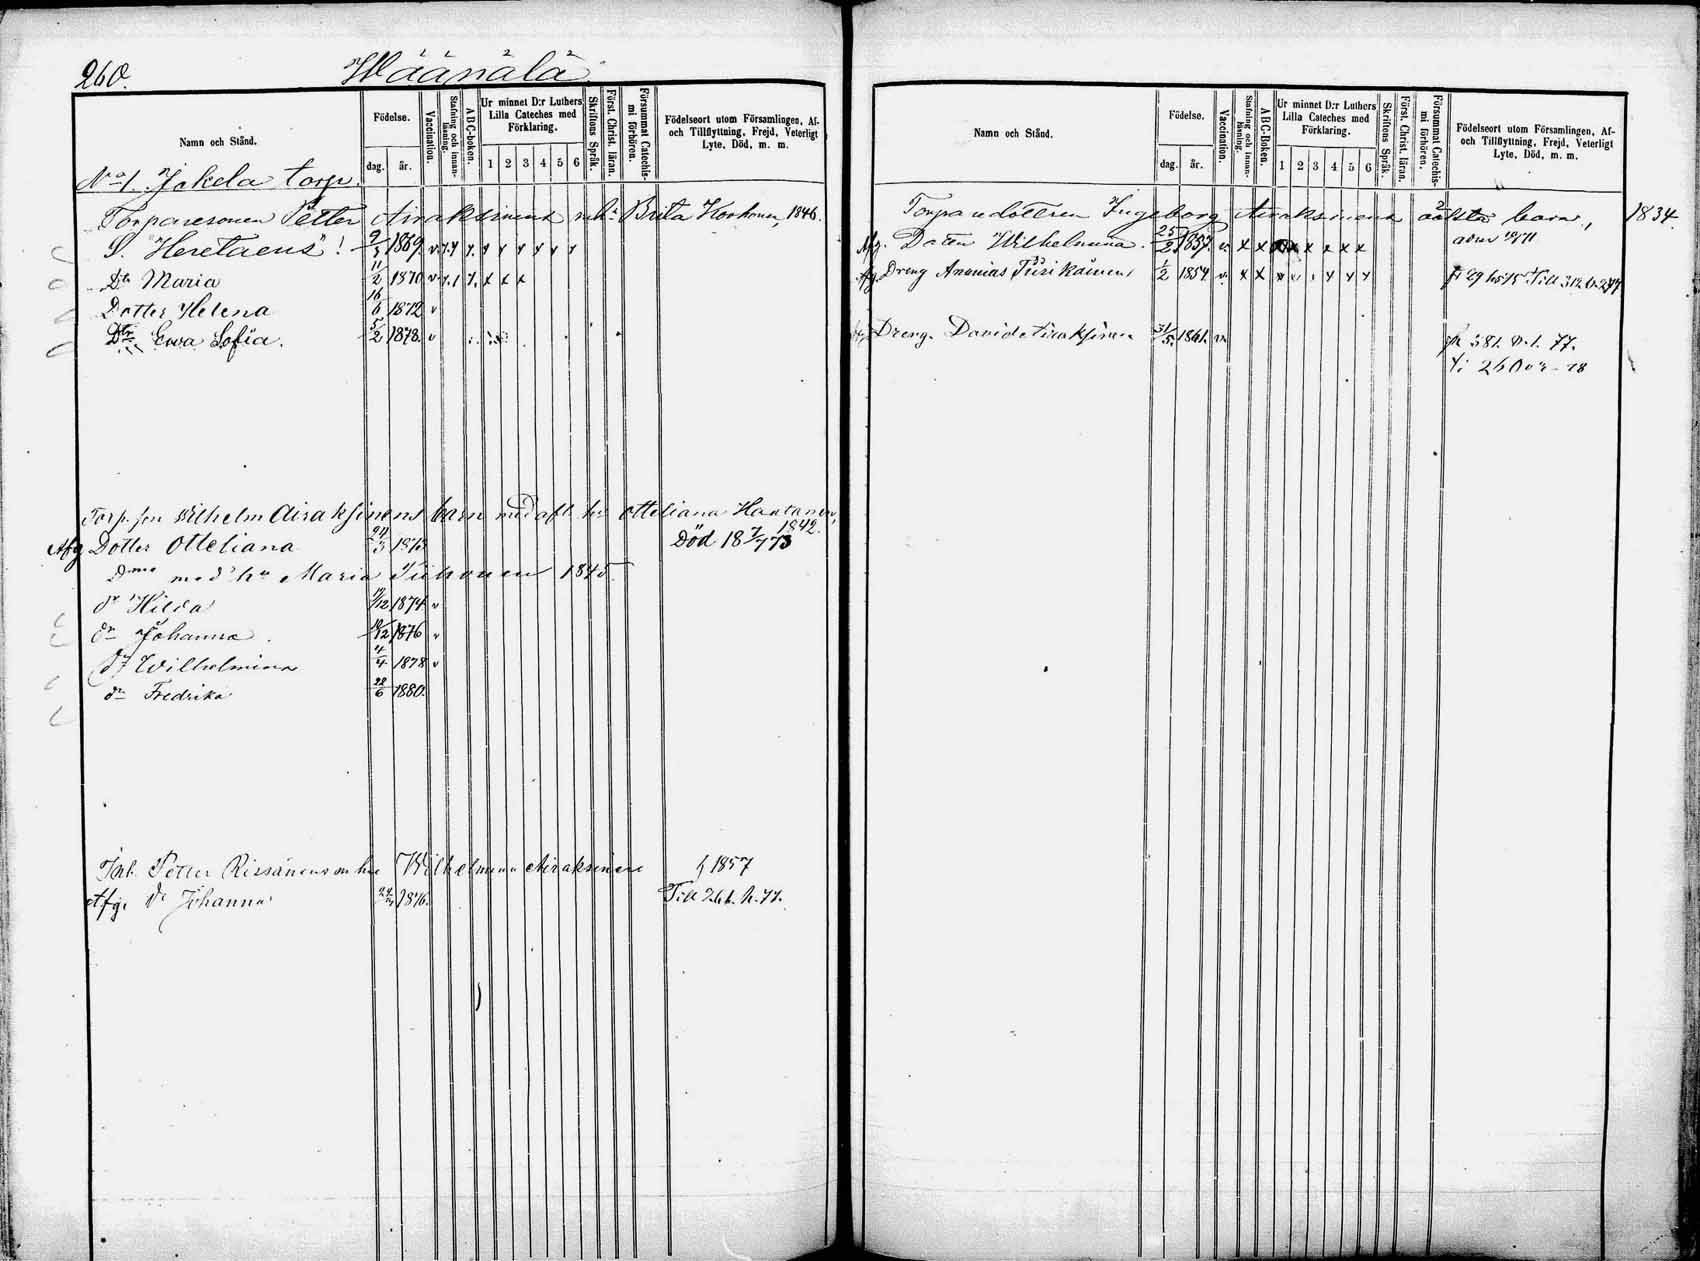 260.
Wäänälä
Namn och Stånd.
Födelse.
dag. år.
Vaccination.
Stafning och innanläsning.
A B C-boken.
Ur minnet D:r Luthers Lilla Cateches med Förklaring.
1 2 3 4 5 6
Skriftens Språk.
Först. Christ. läran.
Försummat Catechismi förhören.
Födelseort utom Församlingen, Af- och Tillflyttning, Frejd, Veterligt Lyte, Död, m. m.
No 1. Jokela torp.
Torparesonen Petter Airaksinens m h: Brita Korhonen, 1846.
S. "Heretaens"! 1869 v x x x x x x
Dr Maria 11/2 1870 v x x x
Dotter Helena 16/6 1872 v
Dtr Ewa Sofia. 5/2 1878. v
Torp. son Wilhelm Airaksinens barn med afl. h: Otteliana Hartonen, 1842.
Afg Dotter Otteliana 24/3 1873 Död 18 7/7 73
Dme med h: Maria Tiihonen 1845
dr Hilda /12 1874 v
dr Johanna 1876 v
dr Wilhelmina 4/4 1878 v
dr Fredrika 22/6 1880.
Inh. Petter Rissanens m hu Wilhelmina Airaksinens f 1857
Afg. dr Johanna 1876. Till 261. h. 77.
Namn och Stånd.
Födelse.
dag. år.
Vaccination.
Stafning och innanläsning.
A B C-Boken.
Ur minnet D:r Luthers Lilla Cateches med Förklaring.
1 2 3 4 5 6
Skriftens Språk.
Först. Christ. läran.
Försummat Catechismi förhören.
Födelseort utom Församlingen, Af- och Tillflyttning, Frejd, Veterligt Lyte, Död, m. m.
Torparedottren Ingeborg Airaksinens oäkta barn, 1834.
Afg. Dotter Wilhelmina. 25/2 1857. v x x x x x x x
Afg. Dreng Ananias 1/2 1854 v x x x x x
Dreng. David Airaksinen 31/5. 1861. v. fr 381. h. 1. 77.